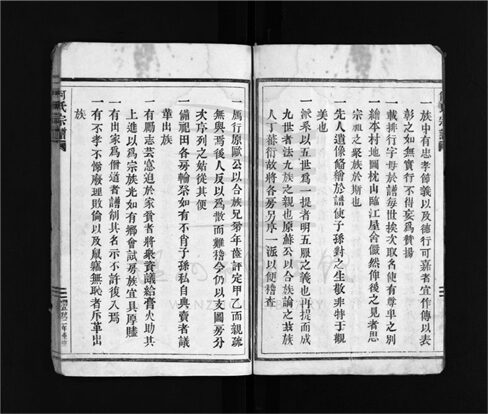 一族中有忠孝節義以及德行可嘉者宜作傳以表
彰之如無實行不得妄為贊揚
一載排行字母於譜每世挨次取名俾有尊卑之別
一繪本村地圖枕山臨江屋舍儼然俾後之見者思
宗祖之聚族於斯也
一先人遺像倐繪於譜使子孫對之生敬非特于觀
美也
一派系以五世為一提者明五服之義也再提而成
九世者法九族之親也原蘇公以合族論之茲族
人丁蕃衍故將各房另序一派以便稽查
一雁行原歐公以合族兄弟年齒評定甲乙而親疏
無與焉後人反以為散而難稽今仍以支圖房分
次序列之始從其便
一備祀田各房輪祭如有不肖子孫私自典賣者議
革出族
一有勵志芸窓迫於家貧者將衆資議給膏火助其
上進以為宗族光如有鄉會試房族宜具厚贐
一有出家為僧道者譜削其名示不許復入焉
一有不孝不悌廢理敗倫以及鼠竊無恥者斥革出
族
何氏宗譜